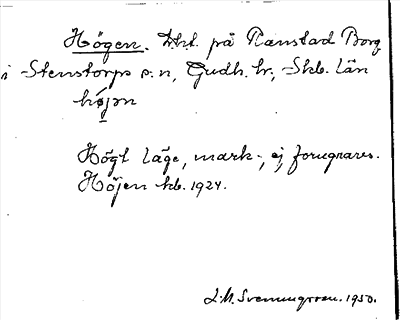 Högen. Trkt. på Ranstad Borg
i Stenstorps s:n, Gudh. hr., Skb. län
höjən
Högt läge, mark-, ej forngravar.
Höjen kb. 1924.
J.M. Svenningsson. 1950.